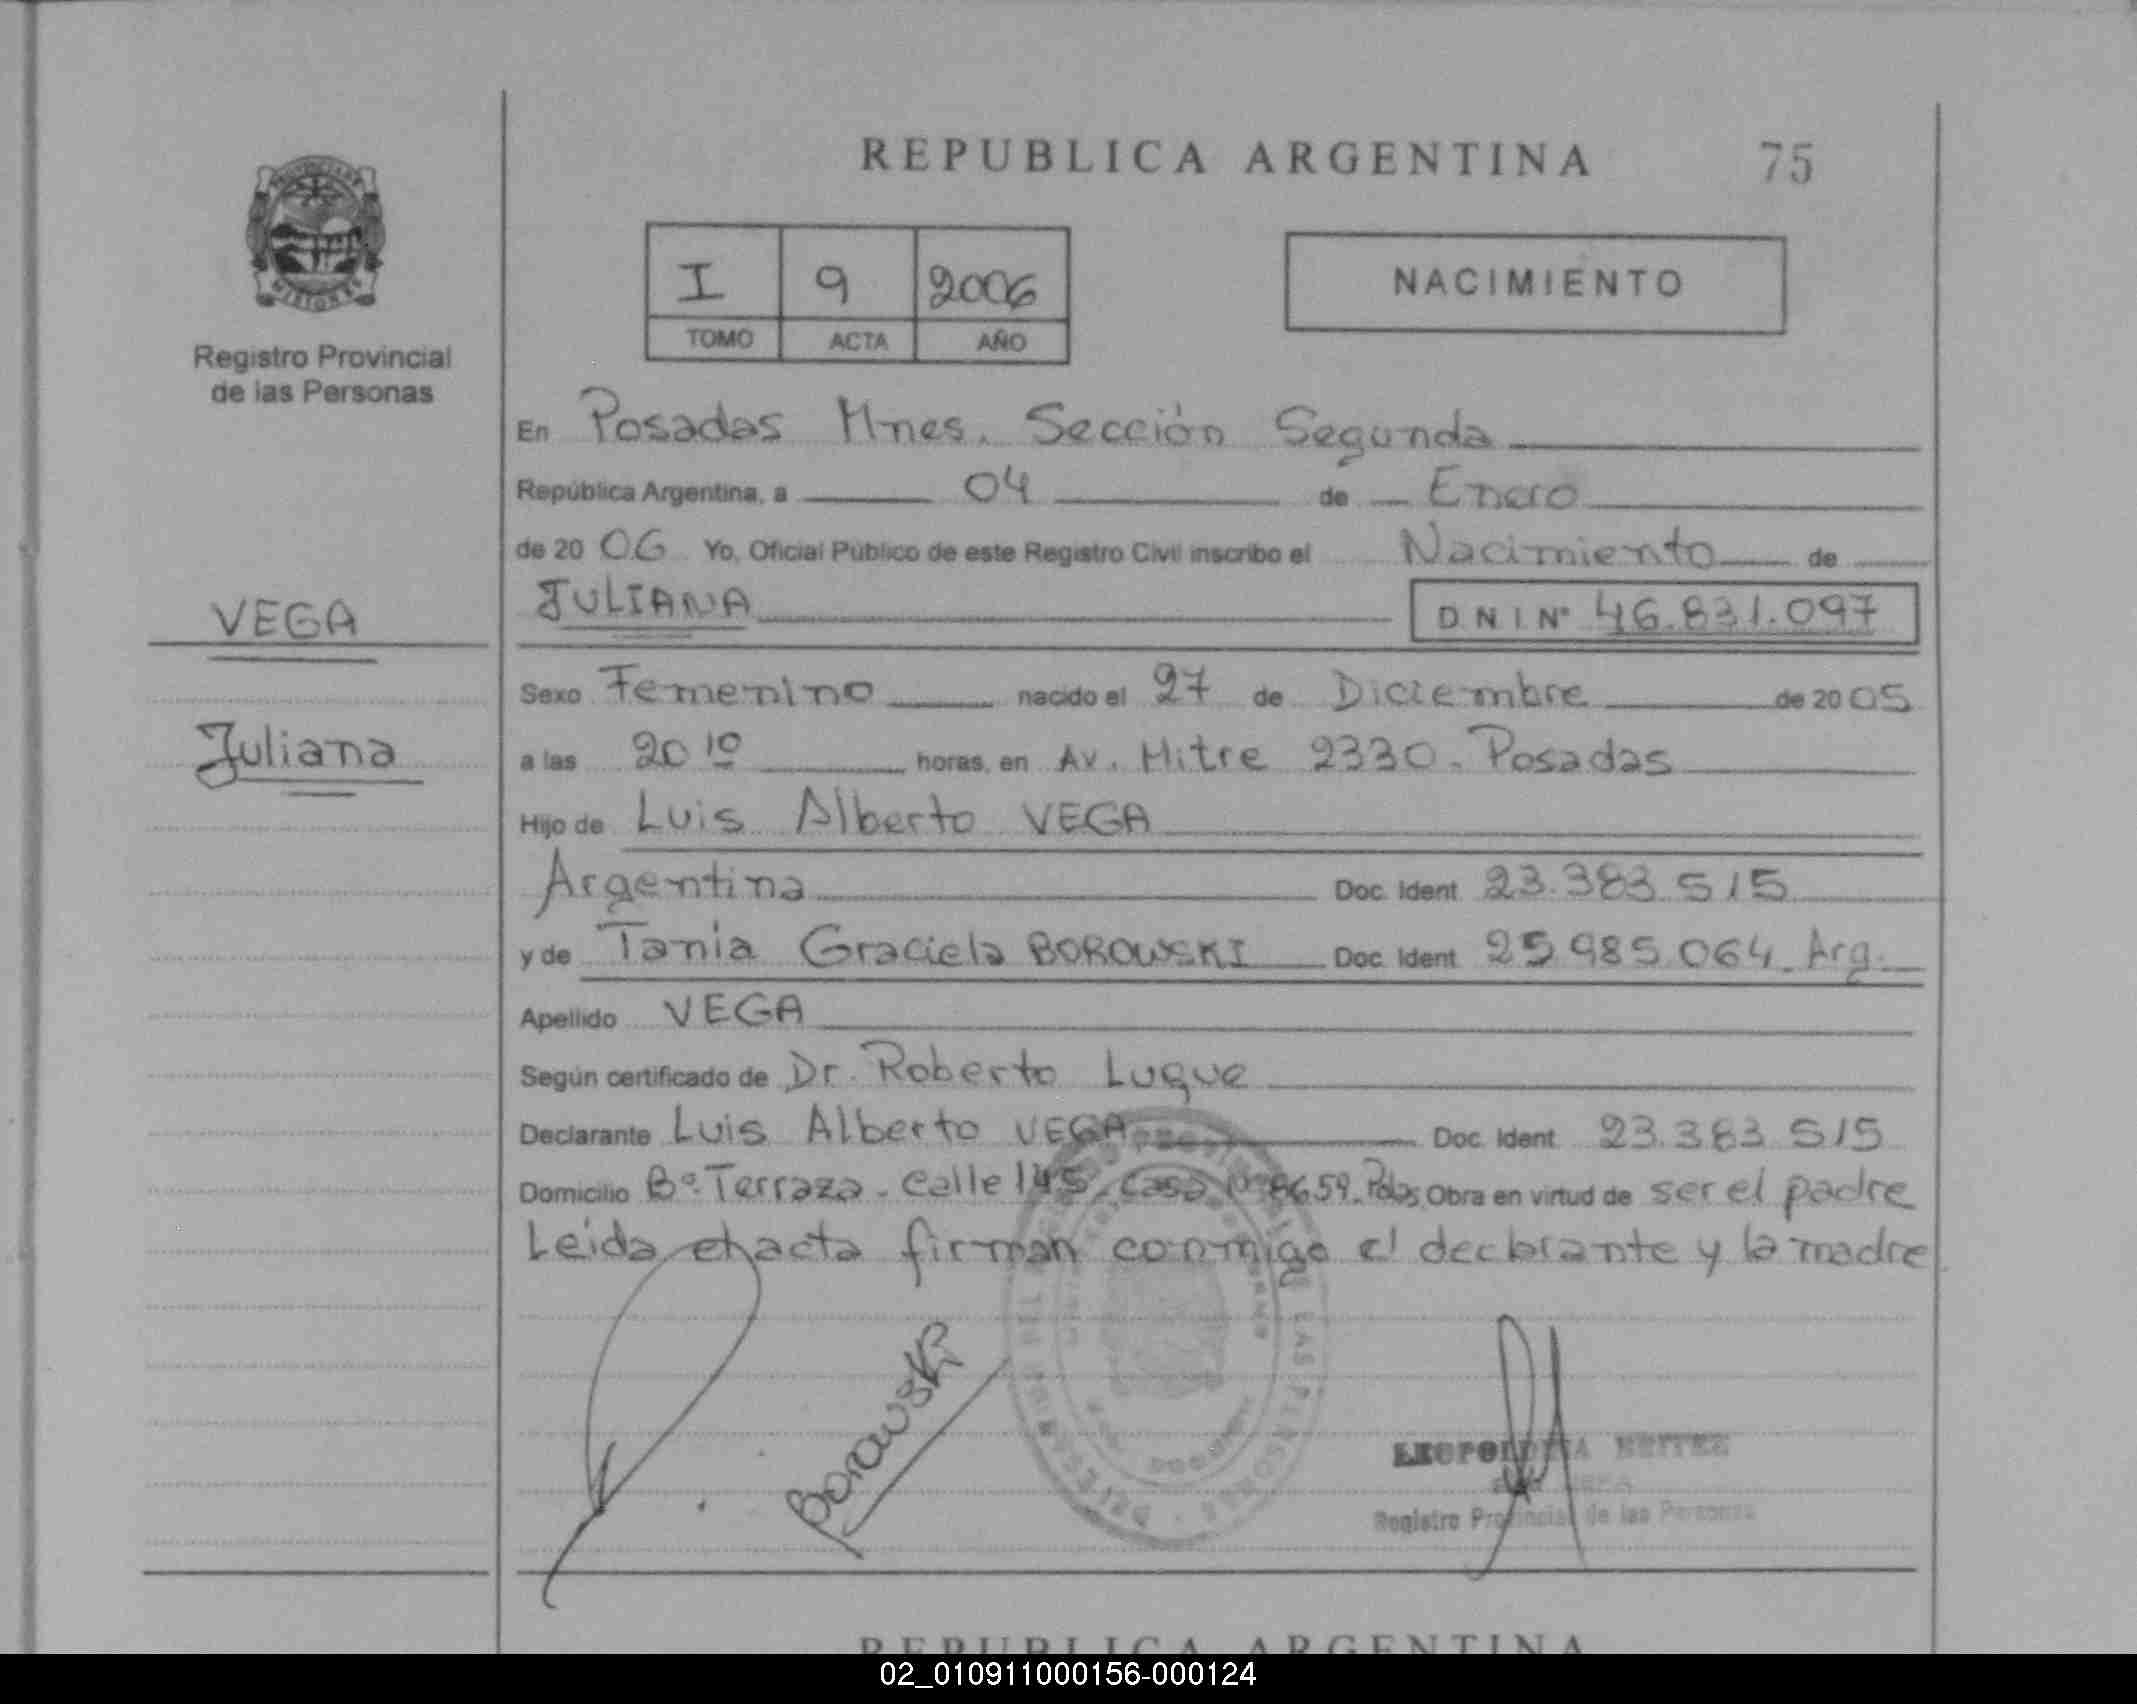 REPUBLICA ARGENTINA 75
PROVINCIA DE
MISIONES
Registro Provincial
de las Personas
I 9 2006
TOMO ACTA AÑO
NACIMIENTO
En Posadas Mnes. Sección Segunda
República Argentina, a 04 de Enero
de 20 06 Yo, Oficial Público de este Registro Civil inscribo el Nacimiento de
VEGA
JULIANA D N I Nº 46.831.097
Sexo Femenino nacido el 27 de Diciembre de 20 05
Juliana
a las 20 10 horas, en Av. Mitre 2330. Posadas
Hijo de Luis Alberto VEGA
Argentina Doc. Ident 23.383.515
y de Tania Graciela BOROWSKI Doc. Ident 25.985.064. Arg.
Apellido VEGA
Según certificado de Dr. Roberto Luque
Declarante Luis Alberto VEGA Doc. Ident 23.383.515
Domicilio Bº. Terraza. Calle 145. casa nº 8659. Pdas. Obra en virtud de ser el padre
Leída el acta firman conmigo el declarante y la madre
Borowski
LAS PERSONAS
LEOPOLDINA
Registro Provincial de las Personas
REPUBLICA ARGENTINA
02_010911000156-000124